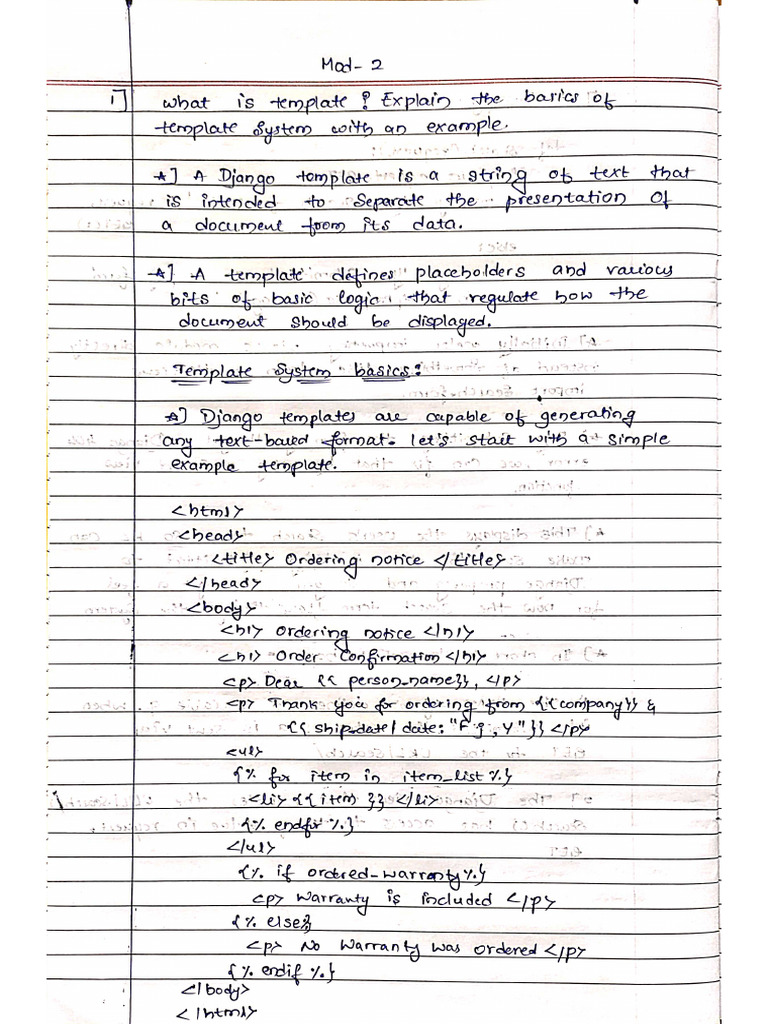 Mod- 2
1] What is template? Explain the basics of
template System with an example.
*] A Django template is a string of text that
is intended to separate the presentation of
a document from its data.
*] A template defines placeholders and various
bits of basic logic that regulate how the
document should be displayed.
Template System basics:
*] Django templates are capable of generating
any text-based format. let's start with a simple
example template.
<html>
<head>
<title> Ordering notice </title>
</head>
<body>
<h1> Ordering notice </h1>
<h1> Order Confirmation </h1>
<p> Dear {{ person_name}}, </p>
<p> Thank you for ordering from {{company}} &
{{ ship_date| date: "F j, Y" }} </p>
<ul>
{% for item in item_list %}
<li> {{ item }} </li>
{% endfor %}
</ul>
{% if ordered_warranty %}
<p> Warranty is included </p>
{% else}
<p> No Warranty was ordered </p>
{% endif %}
</body>
</html>